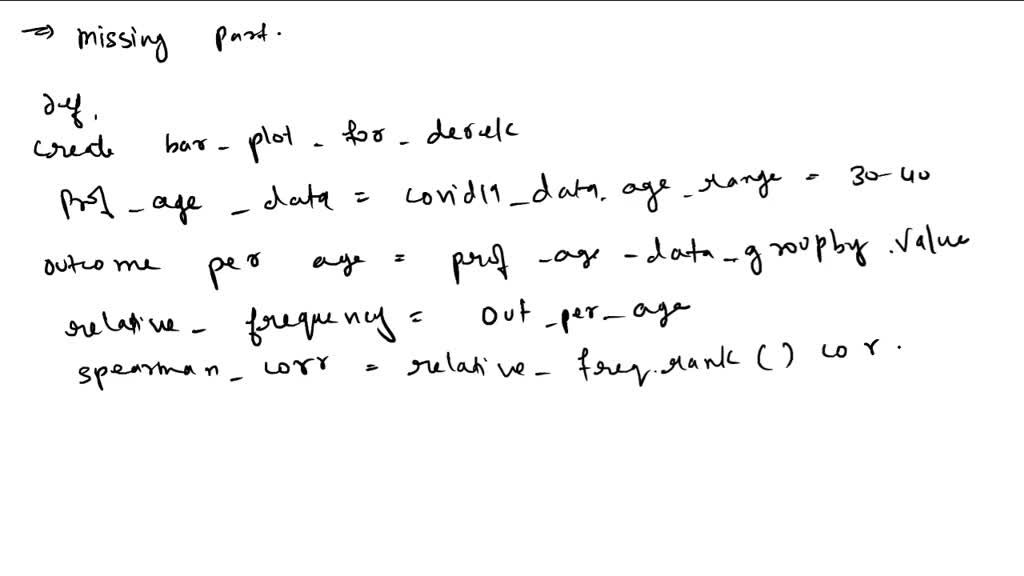 ⇒ missing part.
def,
create bar_plot_for_derek
Prof_age_data = covid19_data. age_range = 30-40
outcome per age = prof_age-data_groupby.value
relative_ frequency = out_per_age
spearman_corr = relative_freq.rank() cor.